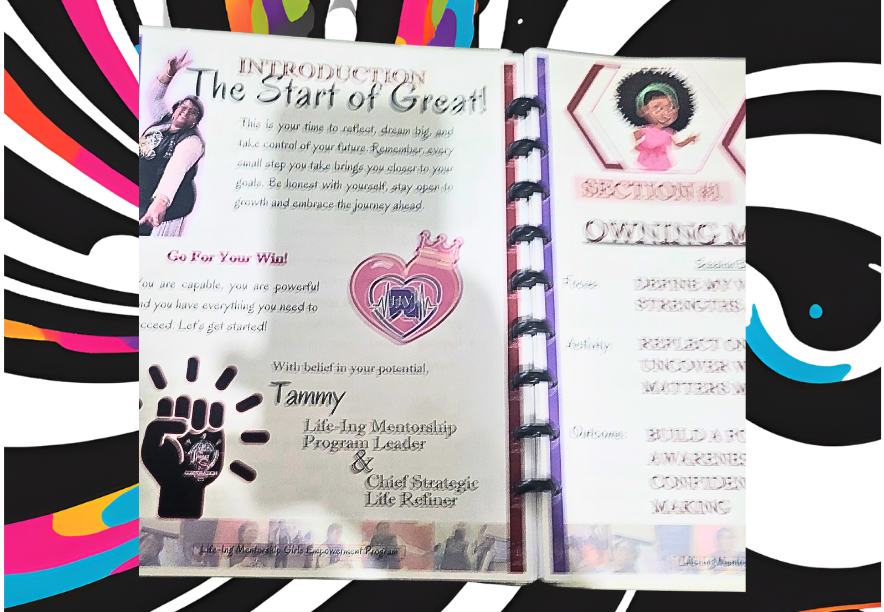 INTRODUCTION
The Start of Great!
This is your time to reflect, dream big, and
take control of your future. Remember, every
small step you take brings you closer to your
goals. Be honest with yourself, stay open to
growth and embrace the journey ahead.
Go For Your Win!
You are capable, you are powerful
nd you have everything you need to
cceed. Let's get started!
With belief in your potential,
Tammy
Life-Ing Mentorship
Program Leader
&
Chief Strategic
Life Refiner
CORPORATION
Life-Ing Mentorship Girls Empowerment Program
SECTION #1
OWNING M
Focus:
DEFINE MY V
STRENGTHS
Activity:
REFLECT ON
UNCOVER W
MATTERS M
Outcome:
BUILD A FO
AWARENES
CONFIDEN
MAKING